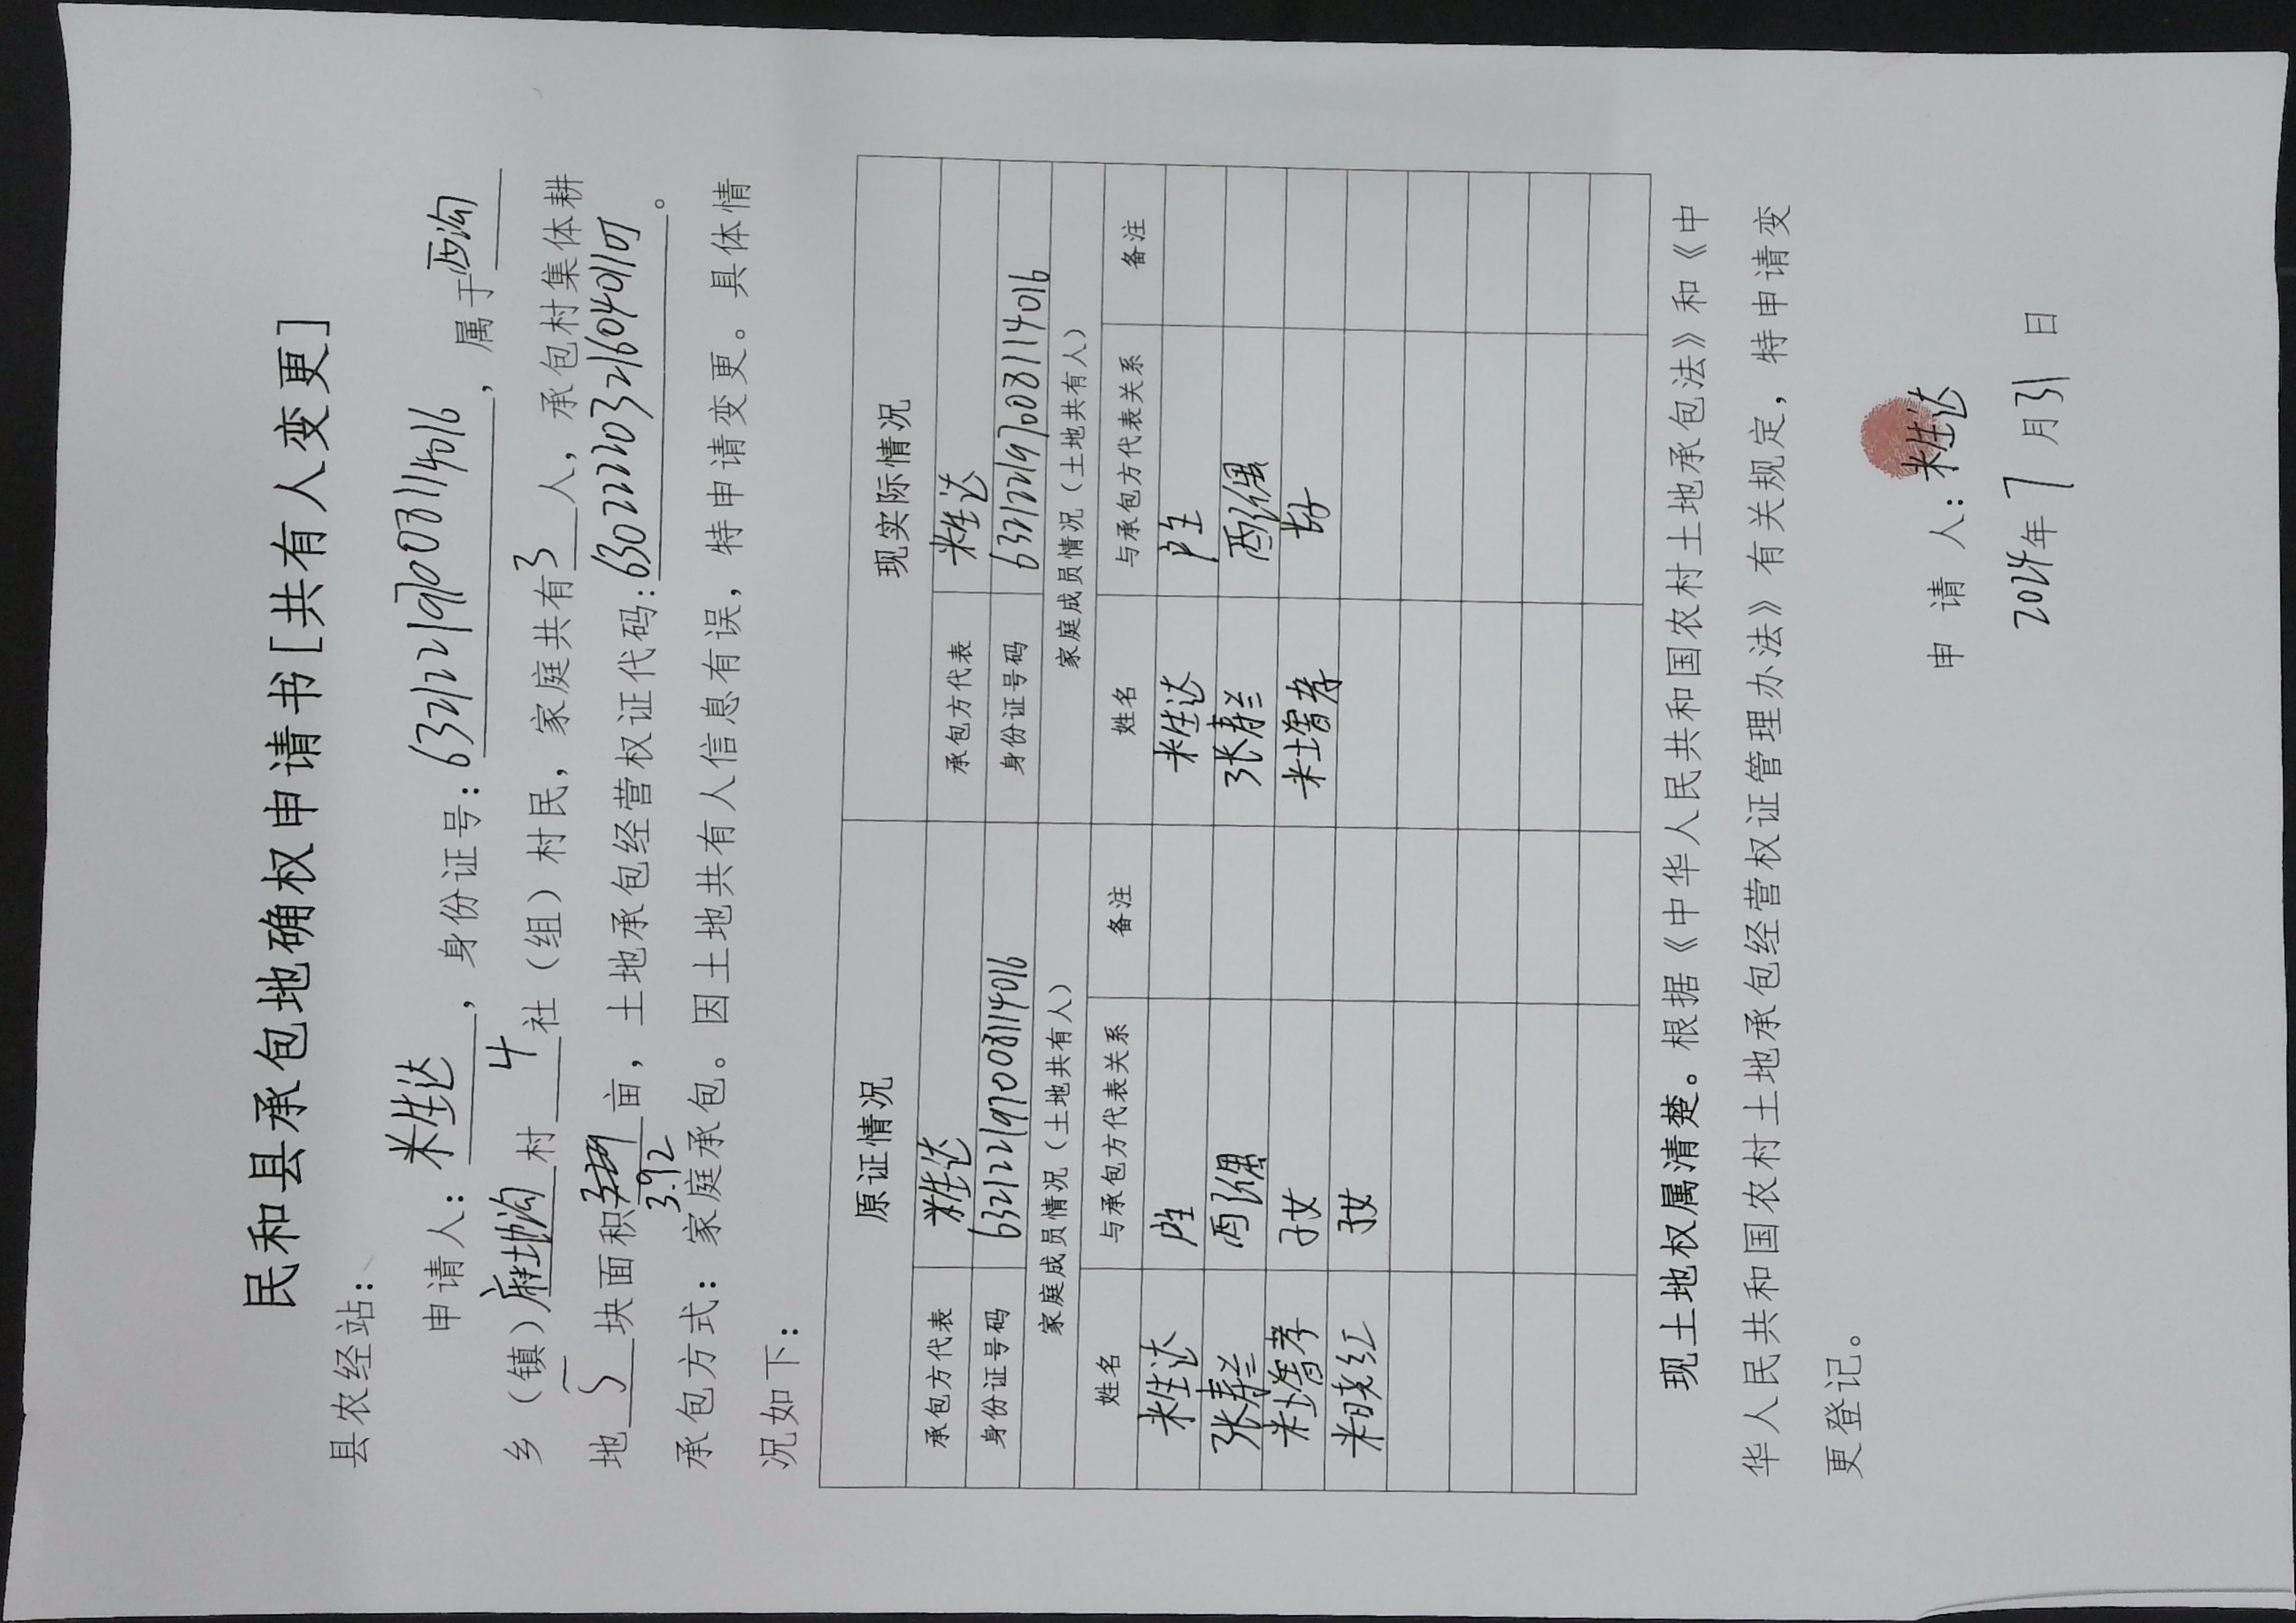 民和县承包地确权申请书[共有人变更]
县农经站:
申请人: 米生达, 身份证号: 632122197008114016, 属于西沟
乡（镇）麻地沟村 4 社（组）村民, 家庭共有 3 人, 承包村集体耕
地 5 块面积 亩, 土地承包经营权证代码: 。
3.92
承包方式: 家庭承包。因土地共有人信息有误, 特申请变更。具体情
况如下:
原证情况 现实际情况
承包方代表 米生达 承包方代表 米生达
身份证号码 632122197008114016 身份证号码 632122197008114016
家庭成员情况（土地共有人） 家庭成员情况（土地共有人）
姓名 与承包方代表关系 备注 姓名 与承包方代表关系 备注
米生达 户主 米生达 户主
张寿兰 配偶 张寿兰 配偶
米增孝 子女 米增孝 长子
米晓红 子女
现土地权属清楚。根据《中华人民共和国农村土地承包法》和《中
华人民共和国农村土地承包经营权证管理办法》有关规定, 特申请变
更登记。
申 请 人: 米生达
2024年 7 月 31 日